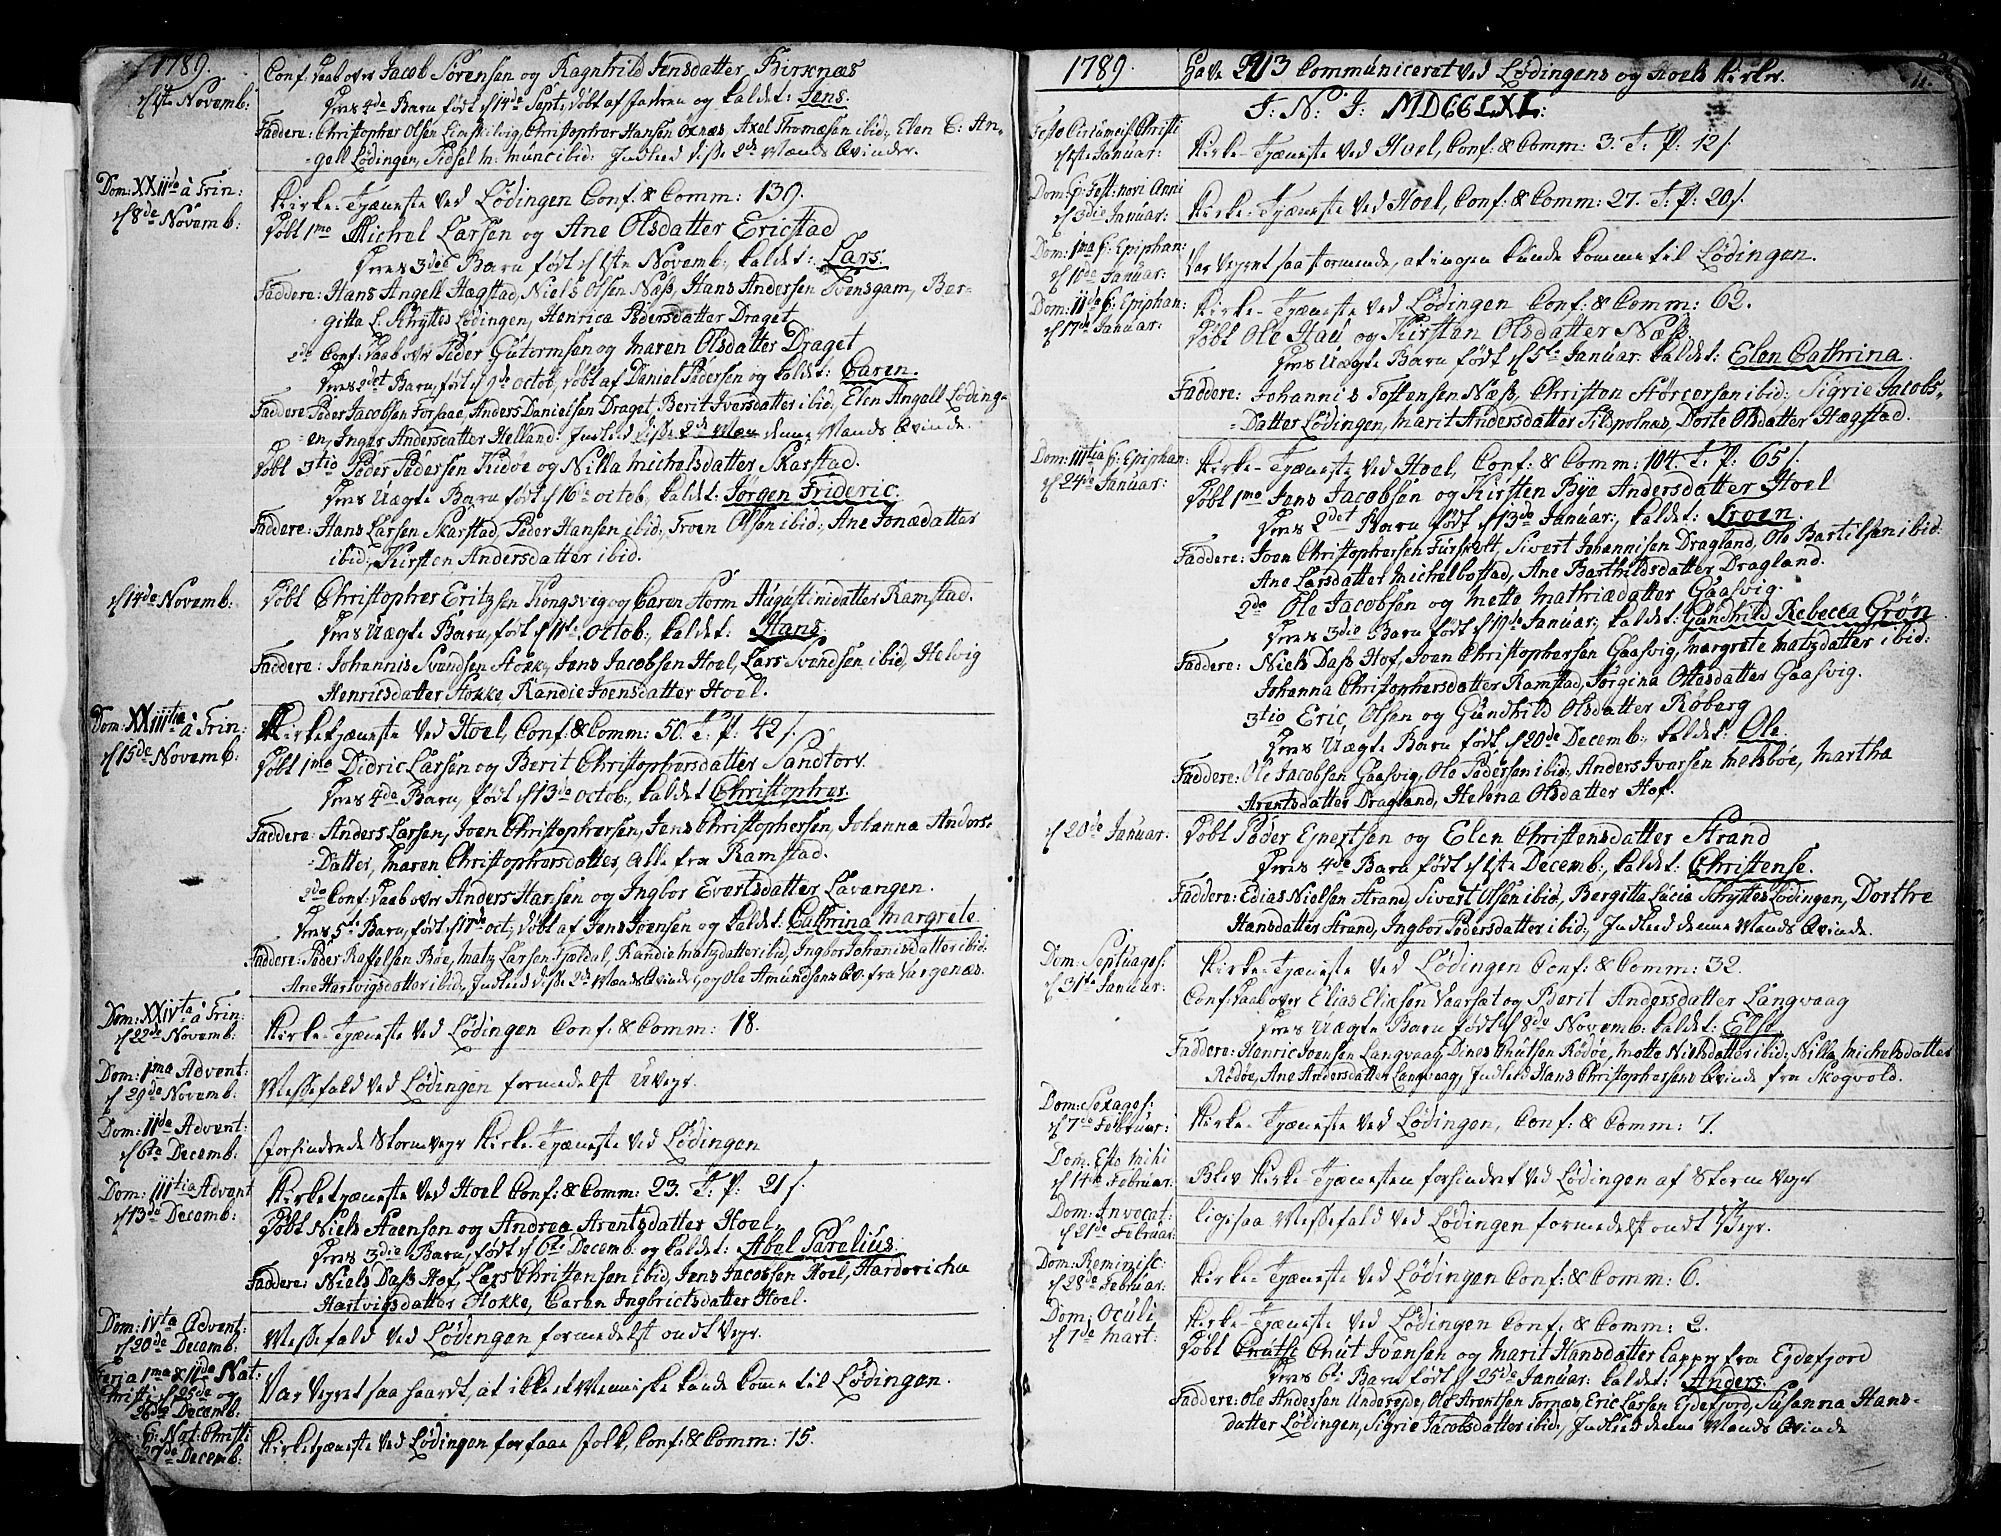 1789.
d 1ste Novemb:
Conf: Daab over Jacob Sörensen og Ragnhild Jensdatter Birknæs
Deres 4de Barn födt d 14de Sept: döbt af Faderen og kaldet: Jens.
Faddere: Christopher Olsen, Christopher Hansen Öxnæs, Axel Thomæsen ibid:, Elen C: An-
gell Lödingen, Sidsel M: Munc ibid: Indleed disse 2de Mænds Qvinder.
Dom: XXIIda à Trin:
d 8de Novemb:
Kirke-Tjæneste ved Lödingen Conf: & Comm: 139.
Döbt 1mo Michel Larsen og Ane Olsdatter Ericstad
Deres 3die Barn födt d 1ste Novemb:, kaldet: Lars.
Faddere: Hans Angell Hægstad, Niels Olsen Næss, Hans Andersen Svensgam, Ber-
gitta L. Schyttes Lödingen, Henrica Pedersdatter Draget
2do Conf: Daab over Peder Guttormsen og Maren Olsdatter Draget
Deres 2det Barn, födt d 9de Octob, döbt af Daniel Pedersen og kaldet: Caren.
Faddere Peder Jacobsen Forsaae, Anders Danielsen Draget, Berit Iversdatter ibid:, Elen Angell Löding-
en, Inger Andersdatter Helland: Indleed disse 2de Mæn denne Mands Qvinde.
Döbt 3tio Peder Pedersen Kidöe og Nilla Michelsdatter Skarstad.
Deres Uægte Barn födt d 16de Octob, kaldet: Jörgen Frideric.
Faddere: Hans Larsen Skarstad, Peder Hansen ibid:, Troen Olsen ibid:, Ane Jonædatter
ibid:, Kirsten Andersdatter ibid.
d 14de Novemb:
Döbt Christopher Eritzsen Kongsveg og Caren Storm Augustinidatter Ramstad.
Deres Uægte Barn, födt d 11te Octob:, kaldet: Hans.
Faddere: Johannis Svendsen Stokke, Jens Jacobsen Hoel, Lars Svendsen ibid, Helvig
Henricsdatter Stokke Randie Joensdatter Hoel.
Dom: XXIIItia à Trin:
d 15de Novemb:
Kirketjæneste ved Hoel, Conf: & Comm: 50. T. P: 42 s.
Döbt 1mo Didric Larsen og Berit Christophersdatter Sandtorv.
Deres 4de Barn, födt d 13de Octob:, kaldet Christopher.
Faddere: Anders Larsen, Joen Christophersen, Jens Christophersen, Johanna Anders-
Datter, Maren Christophersdatter, alle fra Ramstad.
2do Conf: Daab over Anders Larsen og Ingbor Evertsdatter Lavangen.
Deres 5te Barn, födt d 17de Oct:, döbt af Jens Joensen og kaldet: Cathrina Margrete.
Faddere: Peder Rafelsen Böe, Matz Larsen Fjeldal, Randie Matzdatter ibid, Ingbor Johanisdatter ibid:
Ane Hartvigsdatter ibid:, Indleed disse 2de Mænds Qvinder og Ole Amundsens Qv: fra Vargenæs.
Dom: XXIVta à Trin:
d 22de Novemb:
Kirke-Tjæneste ved Lödingen Conf: & Comm: 18.
Dom: 1ma Advent:
d 29de Novemb:
Messefald ved Lödingen formedelst Uveyr.
Dom: IIda Advent:
d 6te Decemb:
forhindrede Stormveyr Kirke-Tjæneste ved Lödingen
Dom: IIItia Advent
d 13de Decemb:
Kirketjæneste ved Hoel Conf: & Comm: 23. T. P: 21 s.
Döbt Niels Steensen og Andrea Arentsdatter Hoel,
Deres 3die Barn, födt d 6te Decemb: og kaldet: Abel Parelius.
Faddere: Niels Dass Hof, Lars Christensen ibid, Jens Jacobsen Hoel, Hardericha
Hartvigsdatter Stokke, Caren Ingbrictsdatter Hoel.
Dom: IVta Advent:
d 20de Decemb:
Messefald ved Lödingen formedelst ondt Veyr.
Feria 1ma & IIda Nat:
Christi d 25de og
26de Decemb.
Var Veyret saa haardt, at ikke et Menniske kunde komme til Lödingen.
Nat: Christi
27de Decemb:
Kirketjæneste ved Lödingen for faae Folk, Conf: & Comm: 15.
1789.
Have 2213 Communiceret ved Lödingens og Hoels Kirker.
11.
J: N: J: MDCCLXL:
Festo Circumcis: Christi
d 1ste Januar:
Kirke-Tjæneste ved Hoel, Conf: & Comm: 3. T. P: 12 s.
Dom: p: Fest: novi Anni
d 3die Januar:
Kirke-Tjæneste ved Hoel, Conf: & Comm: 27. T. P: 20 s.
Dom: 1ma p: Epiphan:
d 10de Januar:
Var Veyret saa stormende, at ingen kunde komme til Lödingen.
Dom: IIda p: Epiphan:
d 17de Januar:
Kirke-Tjæneste ved Lödingen Conf: & Comm: 62.
Döbt Ole Had og Kirsten Olsdatter Næss
Deres Uægte Barn födt d 5te Januar: kaldet: Elen Cathrina.
Faddere: Johannis Tostensen Næss, Christen Störcersen ibid:, Sigrie Jacobs-
Datter Lödingen, Marit Andersdatter Sildpolnæs, Dorte Olsdatter Hægstad.
Dom: IIItia p: Epiphan:
d 24de Januar:
Kirke-Tjæneste ved Hoel, Conf: & Comm: 104. T. P: 65 s.
Döbt 1mo Jens Jacobsen og Kirsten Bye Andersdatter Hoel
Deres 2det Barn födt d 13de Januar:, kaldet: Troen.
Faddere: Joen Christophersen Furskott, Sivert Johannisen Dragland, Ole Bartelsen ibid:
Ane Larsdatter Michelbostad, Ane Barthildsdatter Dragland.
2do Ole Jacobsen og Mette Mathiædatter Gaasvig.
Deres 3die Barn födt d 19de Januar:, kaldet: Gundhild Rebecca Grön
Faddere: Niels Dass Hof, Joen Christophersen Gaasvig, Margrete Matzdatter ibid:
Johanna Christophersdatter Ramstad, Jörgina Ottesdatter Gaasvig.
3tio Eric Olsen og Gundhild Olsdatter Röberg
Deres Uægte Barn födt d 20de Decemb:, kaldet: Ole.
Faddere: Ole Jacobsen Gaasvig, Ole Pedersen ibid:, Anders Ivarsen Melsböe, Martha
Arentsdatter Dragland, Helena Olsdatter Hof.
d 20de Januar:
Döbt Peder Ejertsen og Elen Christensdatter Strand
Deres 4de Barn födt d 1ste Decemb:, kaldet: Christense.
Faddere: Edias Nielsen Strand, Sivert Olsen ibid:, Bergitta Lucia Schyttes Lödingen, Dorthe
Hansdatter Strand, Ingbor Pedersdatter ibid:, Indleed denne Mands Qvinde.
Dom: Septuages:
d 31te Januar:
Kirke-Tjæneste ved Lödingen Conf: & Comm: 32.
Conf: Daab over Elias Eliæsen Vaarsæt og Berit Andersdatter Langvaag
Deres Uægte Barn födt d 8de Novemb: kaldet: Else.
Faddere: Henric Joensen Langvaag, Dines Knutsen Rödöe, Mette Nielsdatter ibid:, Nilla Michelsdatter
Rödöe, Ane Andersdatter Langvaag, Indleed Hans Christophersens Qvinde fra Skogvold.
Dom: Sexages:
d 7de Februar:
Kirke-Tjæneste ved Lödingen, Conf: & Comm: 7.
Dom. Esto Mihi
d 14de Februar:
Blev Kirke-Tjænesten forhindret ved Lödingen af Storm Veyr
Dom: Invocat:
d 21de Februar:
ligesaa Messefald ved Lödingen formedelst ondt Veyr.
Dom: Reminisc:
d 28de Februar:
Kirke-Tjæneste ved Lödingen Conf: & Comm: 6.
Dom: Oculi
d 7de Mart:
Kirke-Tjæneste ved Lödingen Conf: & Comm: 2.
Döbt Cnut Ivensen og Marit Hansdatter Lapper fra Eydefjord
Deres 6te Barn födt d 25de Januar: kaldet: Anders
Faddere: Ole Andersen Undereyde, Ole Arentsen Tornæs, Eric Larsen Eydefjord, Susanna Hans-
datter Lödingen, Sigrie Jacobsdatter ibid:, Indleed denne Mands Qvinde